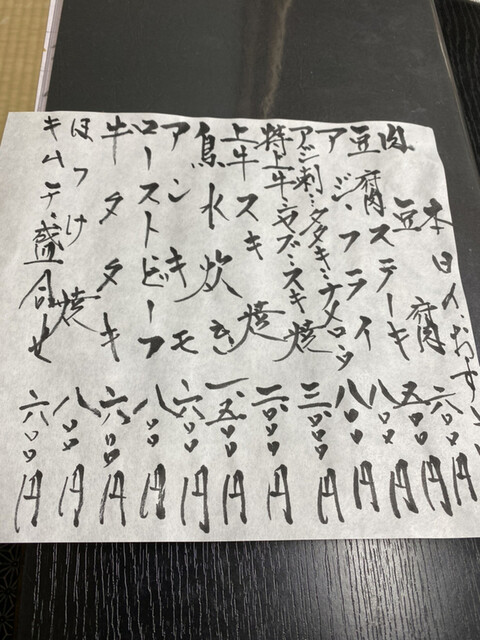 本日のおすす
肉豆腐 六〇〇円
豆腐ステーキ 五〇〇円
アジフライ 八〇〇円
アジ刺・タタキ・ナメロウ 八〇〇円
特上牛・シャブ・スキ焼 三〇〇〇円
上牛スキ焼 二〇〇〇円
鳥水炊き 一、五〇〇円
アンキモ 六〇〇円
ローストビーフ 八〇〇円
牛タタキ 六〇〇円
ほっけ焼 八〇〇円
キムチ盛合せ 六〇〇円